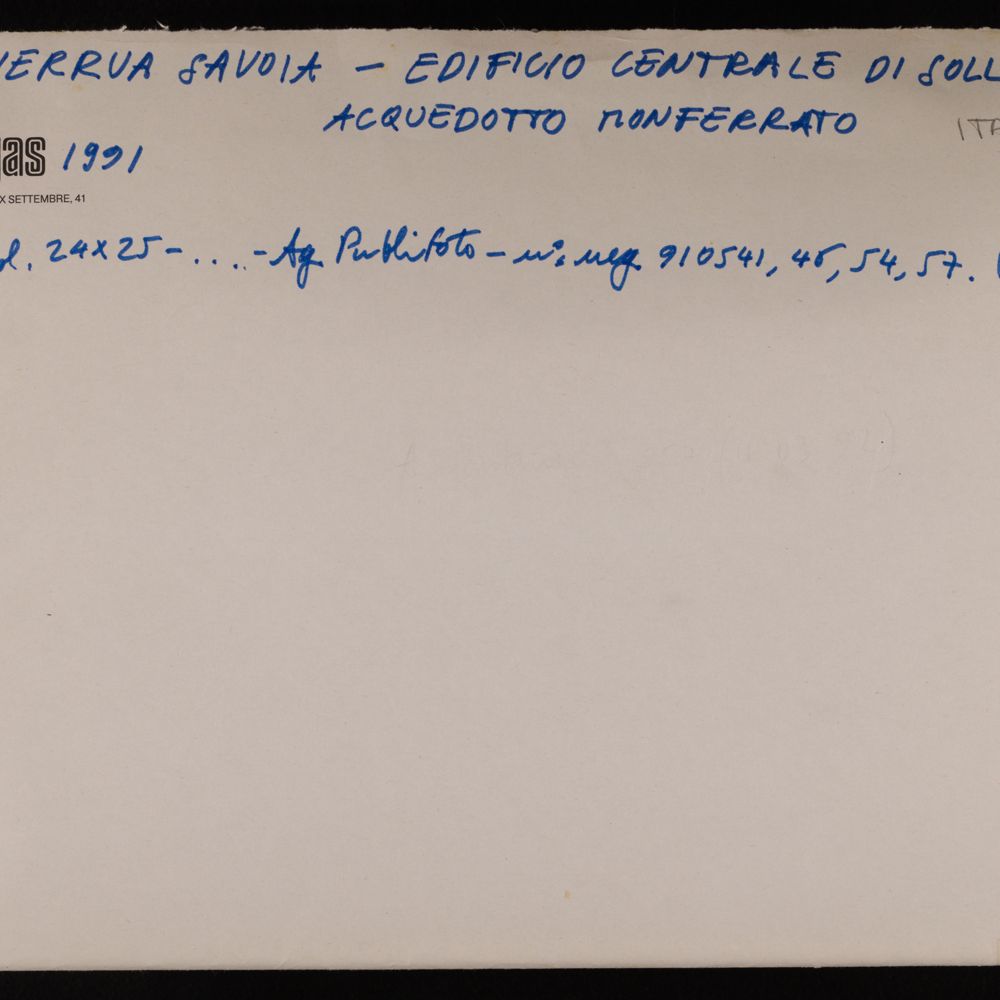 VERRUA SAVOIA – EDIFICIO CENTRALE DI SOLL
ACQUEDOTTO MONFERRATO
ITA
gas 1991
X SETTEMBRE, 41
24x25 - .... - Ag. Publifoto - n°. neg. 910541, 46, 54, 57. (